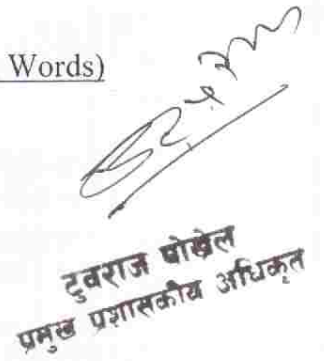 Words)
टुवराज पोखेल
प्रमुख प्रशासकीय अधिकृत